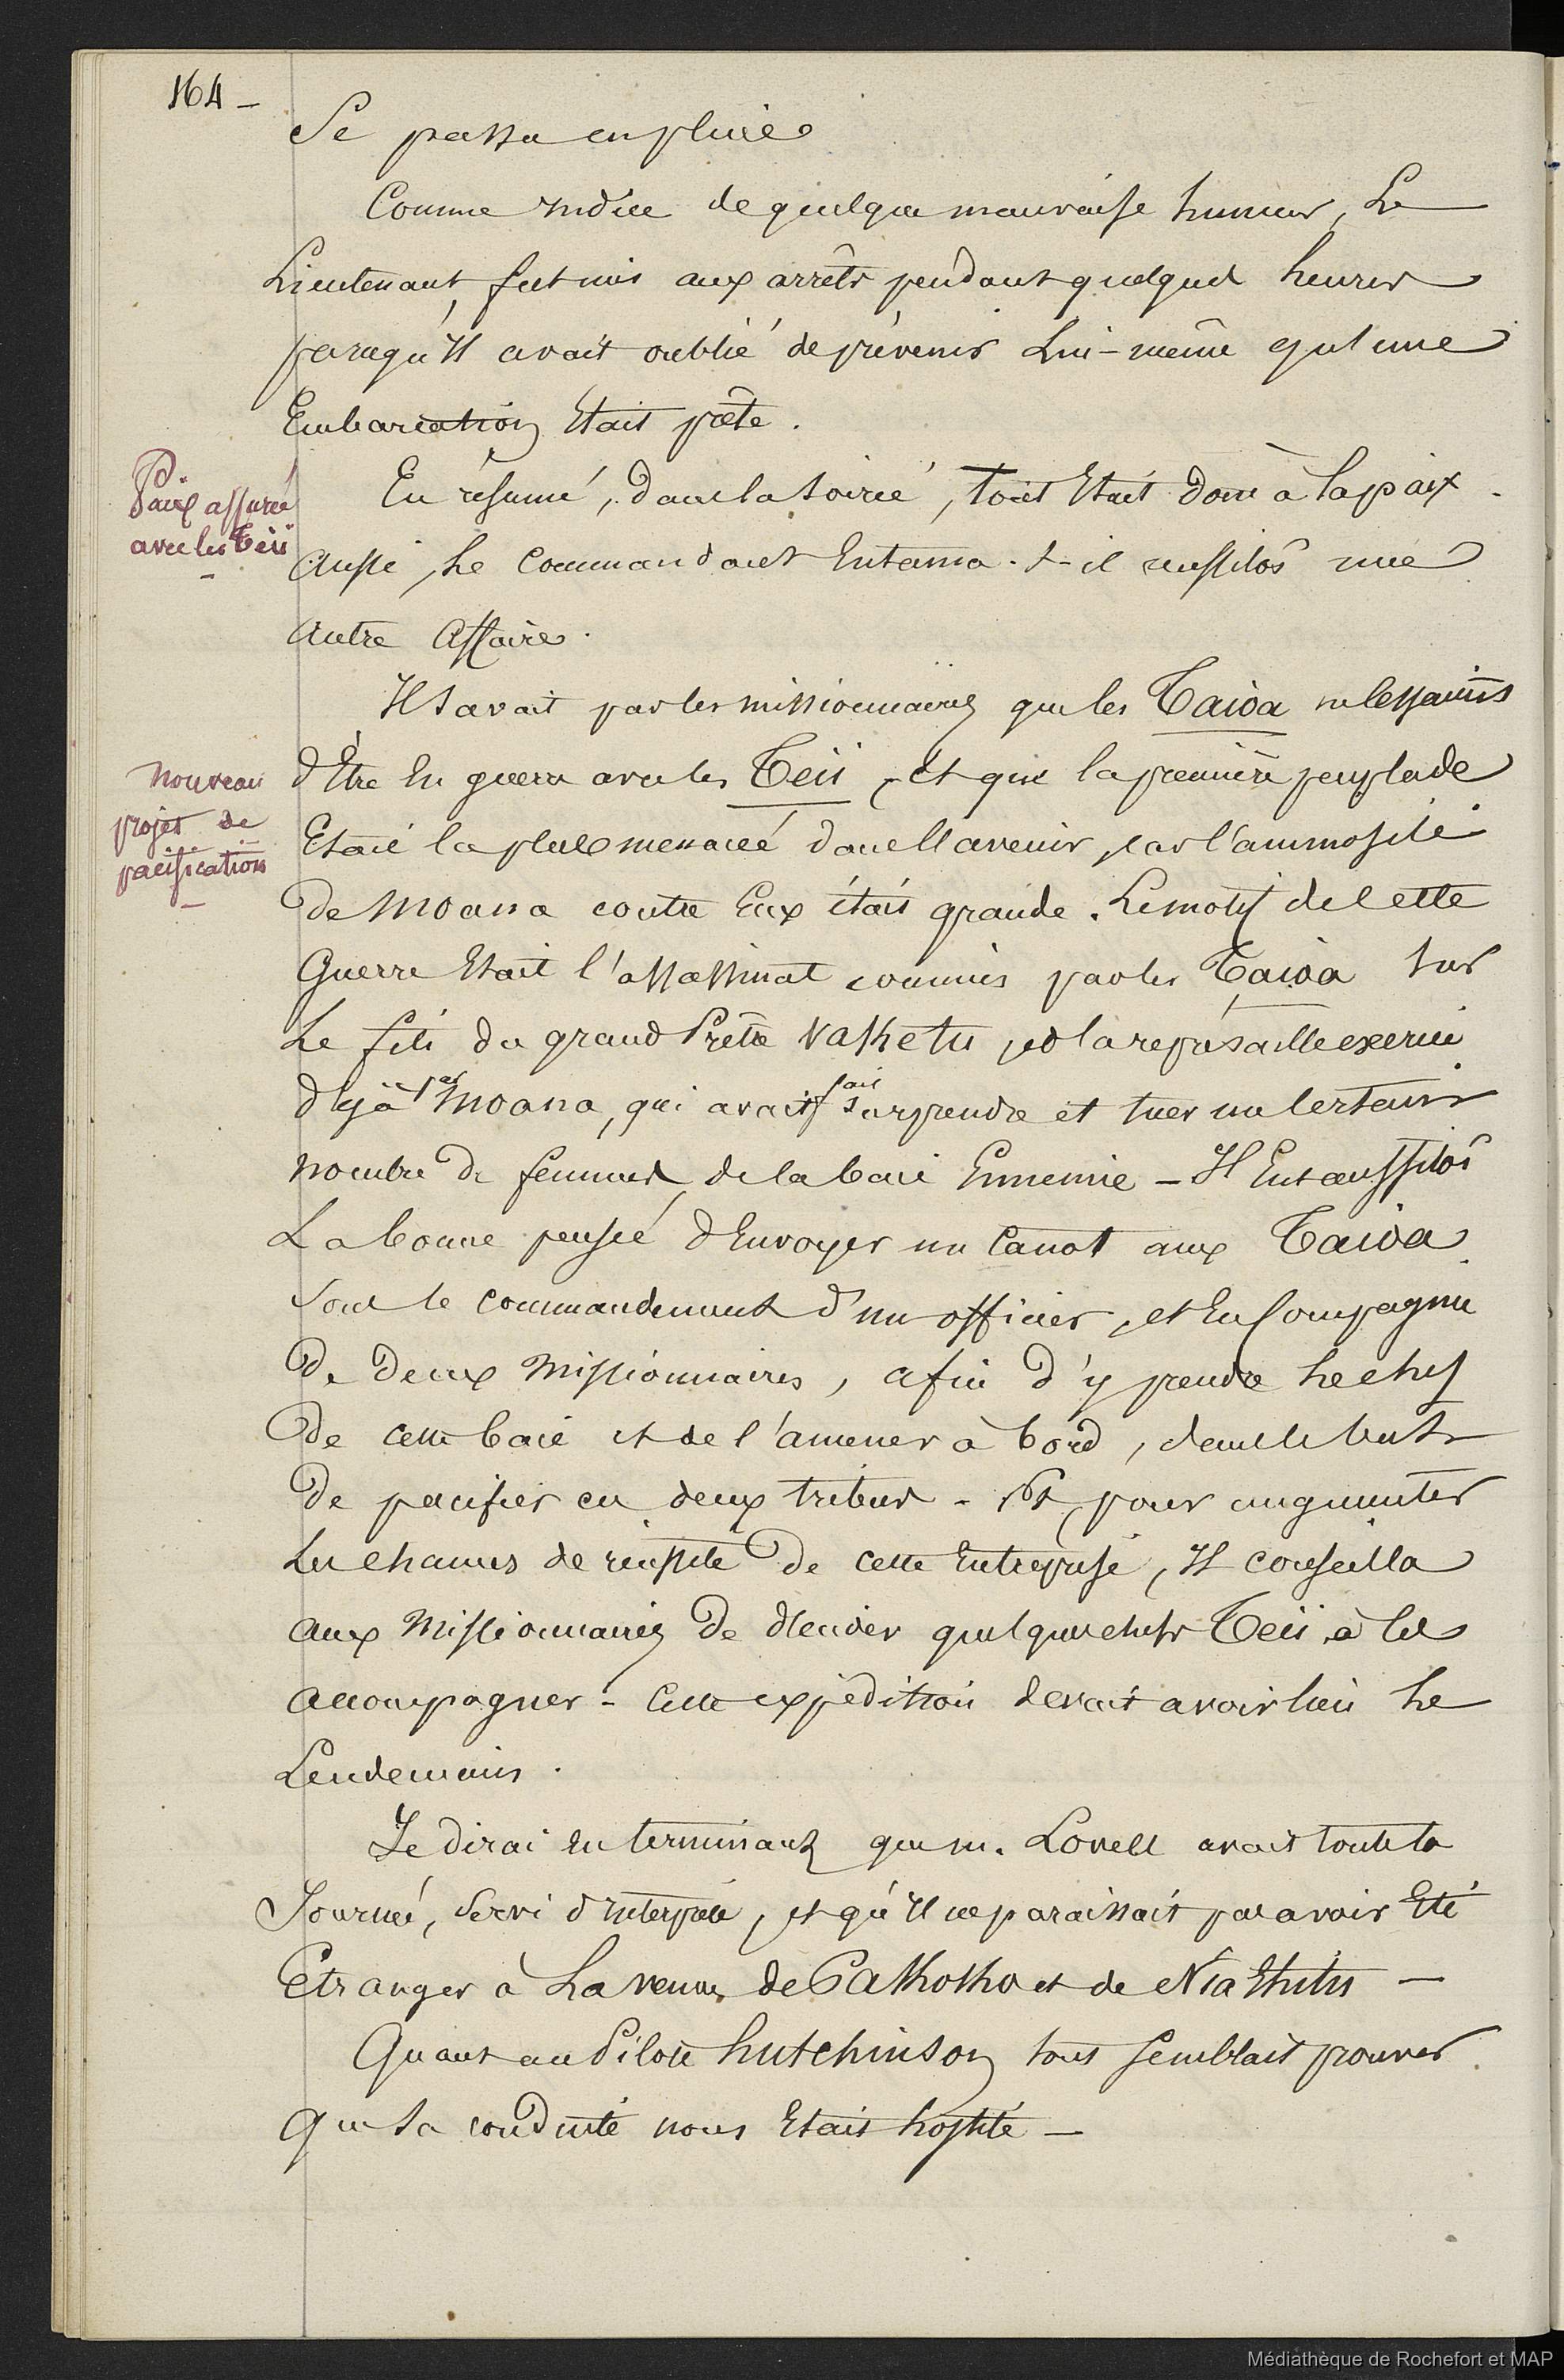 164 -
Se passa en pluie
Comme indice de quelque mauvaise humeur, Le
Lieutenant, fut mis aux arrêts pendant quelques heures
parcequ'Il avait oublié de prévenir Lui-même qu'une
Embarcation Etait prête.
Paix assurée
avec les Teii
-
En résumé, dans la soirée, tout Etait donc à la paix.
Aussi, Le Commandant Entama-t-il aussitôt une
Autre Affaire.
Il savait par les missionnaires que les Taioa ne cessaient
d'Etre En guerre avec les Teii, et que la première peuplade
Nouveau
projet de
pacification
-
Etait la plus menacée dans l'avenir, car l'animosité
De Moana contre Eux était grande. Le motif de cette
Guerre Etait l'assassinat commis par les Taioa sur
Le fils du grand Prêtre Vaketu, et la représaille exercée
déjà par Moana, qui avait fait surprendre et tuer un certain
Nombre de femmes de la baie Ennemie - Il Eut aussitôt
La bonne pensée d'Envoyer un Canot aux Taioa
Sous le commandement d'un officier, et En Compagnie
De Deux Missionnaires, afin d'y prendre Le chef
De cette baie et de l'amener à bord, dans le but
De pacifier ces deux tribus - Et, pour augmenter
Les chances de réussite De cette Entreprise, Il conseilla
Aux Missionnaires De décider quelques chefs Teii à les
Accompagner - Cette expédition devait avoir lieu Le
Lendemain.
Je dirai en terminant que M. Lovell avait toute la
Journée, Servi d'Interprète, et qu'Il ne paraissait pas avoir Eté
Etranger à La venue de Pakhokho et de Niathitu -
Quant au Pilote Hutchinson tout semblait prouver
Que sa conduite nous Etait hostile -
Médiathèque de Rochefort et MAP